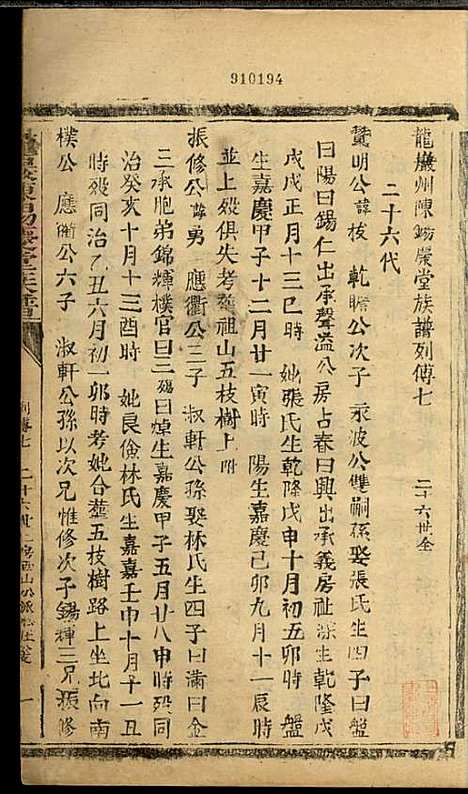 910194
龍巖州陳錫嚴堂族譜列傳七　二十六世全
二十六代
贊明公諱枝　乾瞻公次子　汞波公雙嗣孫娶張氏生四子曰盤
曰陽曰錫仁出承聲溢公房占春曰興出承義房祉深生乾隆戊
戌戊正月十三巳時　妣張氏生乾隆戊申十月初五卯時　盤
生嘉慶甲子十二月廿一寅時　陽生嘉慶己卯九月十一辰時
並上殁俱失考葬祖山五枝樹上附
振修公諱勇　應衢公三子　淑軒公孫娶林氏生四子曰滿曰金
三承胞弟錦輝樸官曰三賜曰焯生嘉慶甲子五月廿八申時殁同
治癸亥十月十三酉時　妣良儉林氏生嘉嘉壬申十月十一丑
時殁同治乙丑六月初一卯時考妣合葬五枝樹路上坐北向南
樸公　應衢公六子　淑軒公孫以次兄惟修次子錫輝三兄振修
列傳七　二十六世